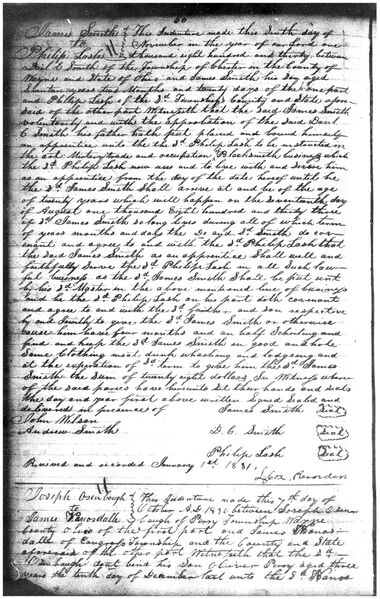 60
James Smith This Indenture made this Sixth day of
to November in the year of our Lord one
Philip Lash thousand eight hundred and thirty between
C Smith of the Township of Chester in the County of
Wayne and State of Ohio and James Smith his Son aged
Seventeen years two Months and twenty days of the one part
and Philip Lash of the Sd Township County and State afore-
said of the other part Witnesseth that the said James Smith
voluntarily and with the Approbation of the Said
C Smith his father hath put placed and bound himself
an apprentice unto the Sd Philip Lash to be instructed in
the art Mistery trade and occupation Blacksmith business which
the Sd Philip Lash now uses and to live with and Serve him
as an apprentice from the day of the date hereof until he
the Sd James Smith Shall arrive at and be of the age
of twenty years which will happen on the Seventeenth day
of August one thousand Eight hundred and thirty three
if Sd James Smith so long lives during all of which term
of years months and days the and Sd Smith do cov-
enant and agree to and with the Sd Philip Lash that
the Said James Smith as an apprentice Shall well and
faithfully Serve the Sd Philip Lash in all Such law-
ful business as the Sd James Smith Shall be put unto
by his Sd Master in the above mentioned line of business
and he the Sd Philip Lash on his part doth covenant
and agree to and with the Sd father and son respective
ly and Jointly to give the Sd James Smith or otherwise
cause him have four months and one half Schooling and
find and keep the Sd James Smith in good and
Some Clothing meat drink whashing and lodgeing and
at the expiration of Sd term to give him the Sd James
Smith the Sum of twenty eight dollars In Witness where
of the said parties have hereunto Set their hands and Seals
the day and year first above written Signed Seald and
delivered in presence of James Smith Seal
John Wilson
Andrew Smith D. C. Smith Seal
Philip Lash Seal
Received and recorded January 1st 1831
Cox, Recorder
Joseph This Indenture made this 7th day of
to October A.D 1830 between Joseph
James of Perry Township Wayne
County Ohio of the first part and James
of Congress Township and the County and State
aforesaid of the other part Witnesseth that the Sd
doth bind his Son Oliver Perry aged three
years the tenth day of December last unto the Sd